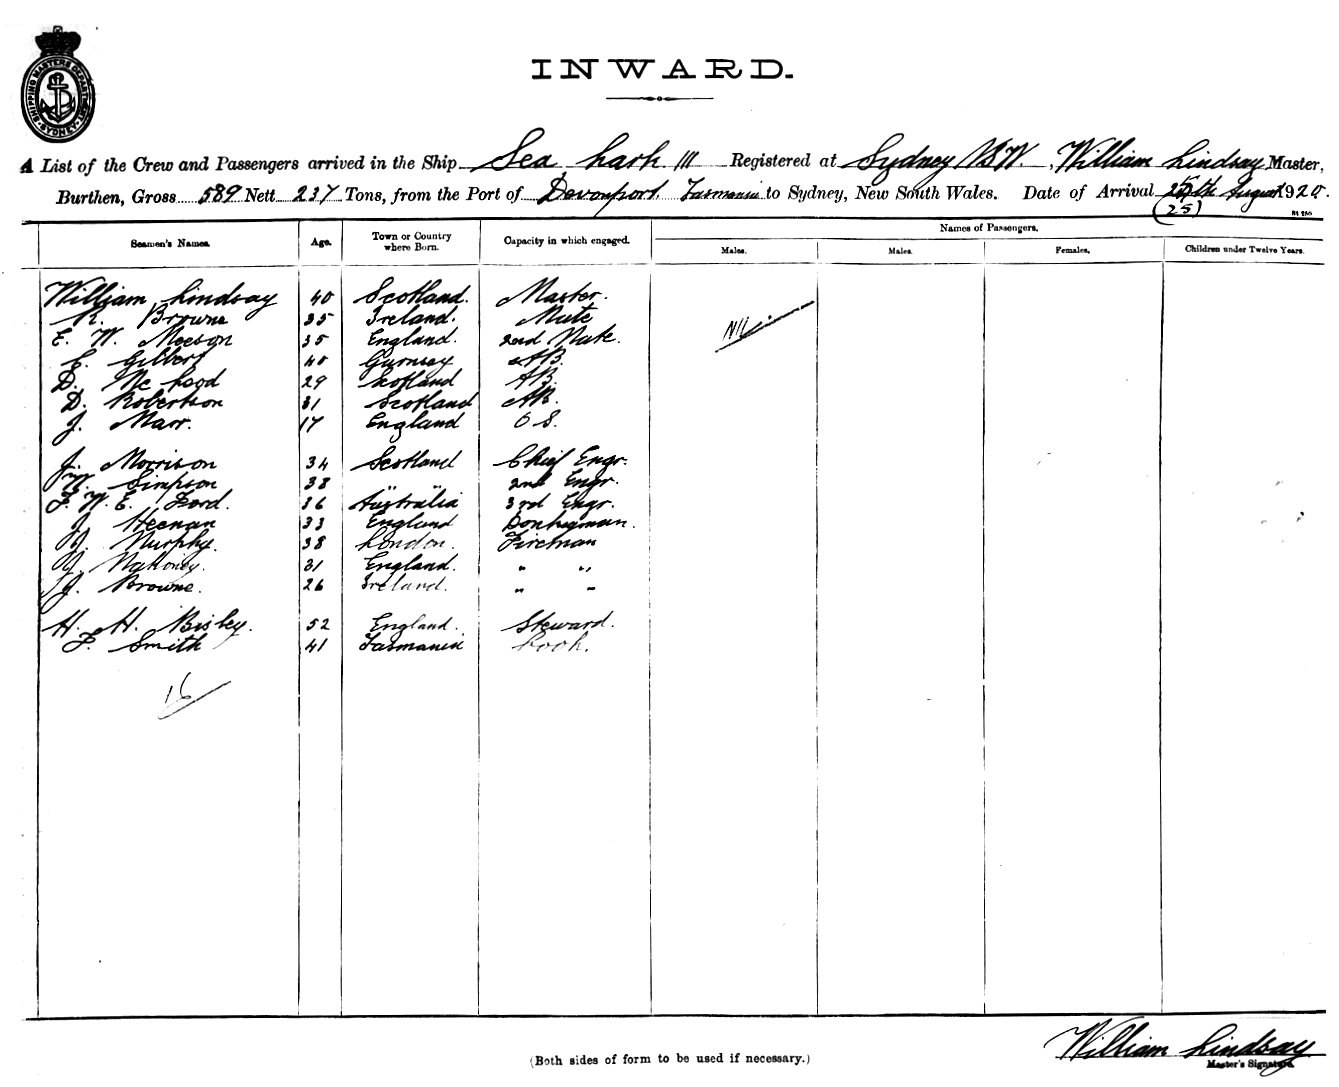 SHIPPING MASTERS DEPARTMENT SYDNEY
INWARD.
A List of the Crew and Passengers arrived in the Ship Sea Lark III Registered at Sydney NSW., William Lindsay Master,
Burthen, Gross 589 Nett 237 Tons, from the Port of Devonport Tasmania to Sydney, New South Wales. Date of Arrival August 192
(25)
Seamen's Names. Age. Town or Country where Born. Capacity in which engaged. Names of Passengers.
Males. Males. Females. Children under Twelve Years.
William Lindsay 40 Scotland. Master.
R. Browne 35 Ireland. Mate
E. W. Meeson 35 England. 2nd Mate.
E. Gilbert 40 Gurnsey AB.
D. McLeod 29 Scotland AB.
D. Robertson 31 Scotland AB.
J. Marr. 17 England O S.
Nil
J. Morrison 34 Scotland Chief Engr.
W. Simpson 38 " " 2nd Engr.
F. W. E. Ford. 36 Australia 3rd Engr.
J. Heenan 33 England Donkeyman.
J. Murphy. 38 London. Fireman
J. Mahoney. 31 England. " "
J. Browne. 26 Ireland. " "
H. H. Bisley. 52 England. Steward.
F. Smith 41 Tasmania Cook.
16
William Lindsay
Master's Signature.
(Both sides of form to be used if necessary.)